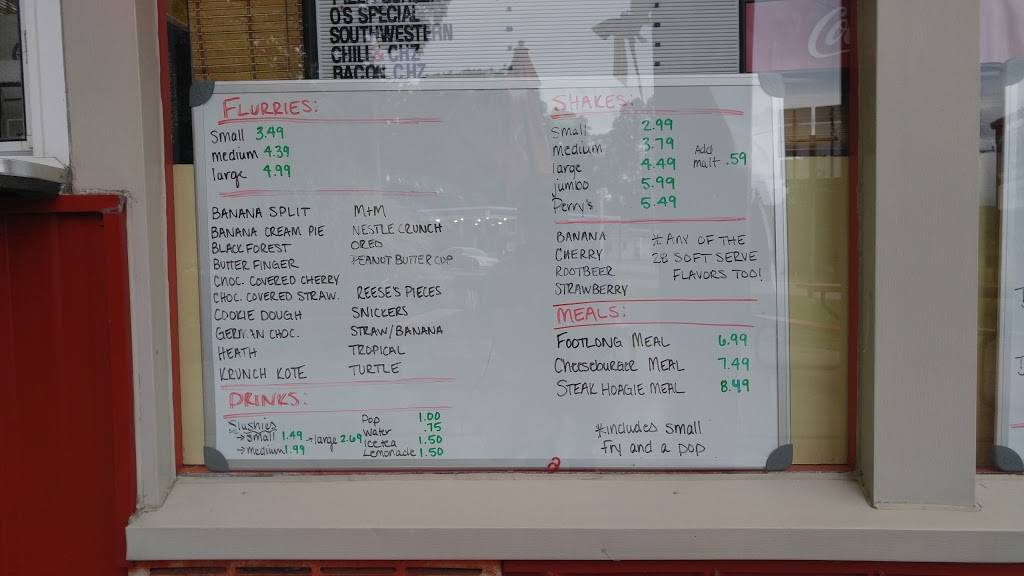 O'S SPECIAL
SOUTHWESTERN
CHILI & CHZ
BACON CHZ
FLURRIES:
Small 3.49
medium 4.39
large 4.99
BANANA SPLIT
BANANA CREAM PIE
BLACK FOREST
BUTTER FINGER
CHOC. COVERED CHERRY
CHOC. COVERED STRAW.
COOKIE DOUGH
GERMAN CHOC.
HEATH
KRUNCH KOTE
M+M
NESTLE CRUNCH
OREO
PEANUT BUTTER CUP
REESE'S PIECES
SNICKERS
STRAW/BANANA
TROPICAL
TURTLE
DRINKS:
Slushies
→ small 1.49 → large 2.69
→ medium 1.99
Pop 1.00
Water .75
Ice tea 1.50
Lemonade 1.50
SHAKES:
Small 2.99
medium 3.79
large 4.49
jumbo 5.99
Perry's 5.49
Add
malt .59
BANANA
CHERRY
ROOTBEER
STRAWBERRY
*ANY OF THE
28 SOFT SERVE
FLAVORS TOO!
MEALS:
FOOTLONG MEAL 6.99
CHEESEBURGER MEAL 7.49
STEAK HOAGIE MEAL 8.49
*includes small
fry and a pop
2